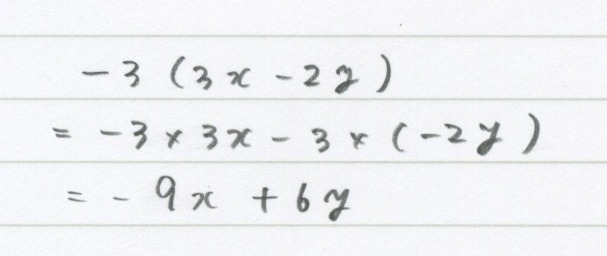 -3 (3x - 2y)
= -3 × 3x - 3 × (-2y)
= - 9x + 6y